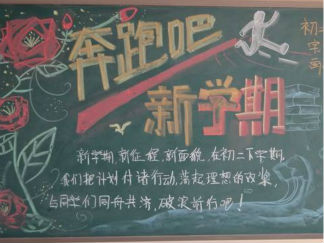 奔跑吧
新学期
初二
新学期,新征程,新面貌,在初二下学期,
我们把计划付诸行动,荡起理想的双桨,
与同学们同舟共济,破浪前行吧!